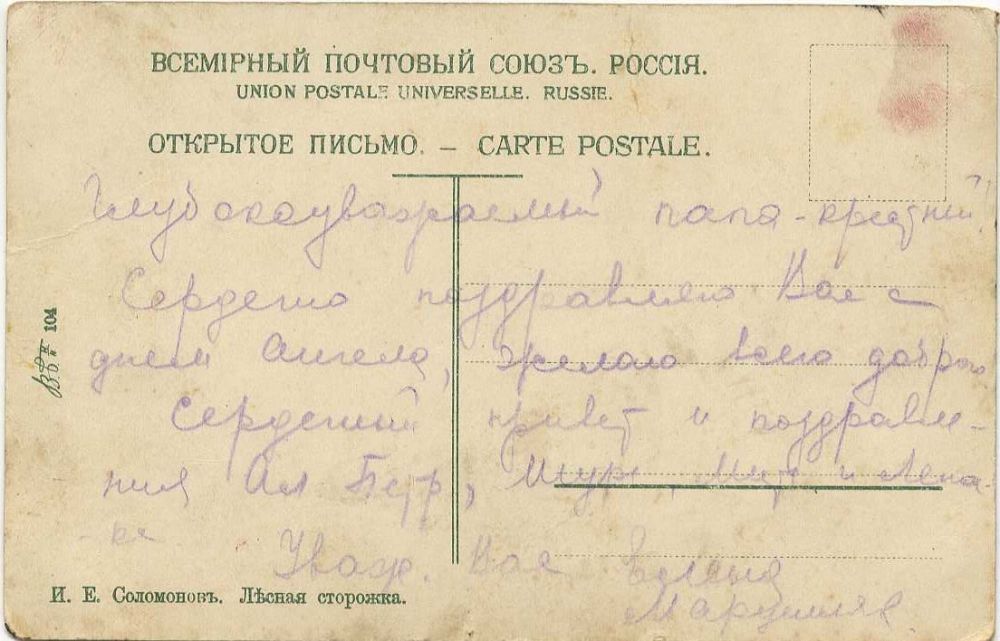 ВСЕМІРНЫЙ ПОЧТОВЫЙ СОЮЗЪ. РОССІЯ.
UNION POSTALE UNIVERSELLE. RUSSIE.
ОТКРЫТОЕ ПИСЬМО. – CARTE POSTALE.
Глубокоуважаемый папа-крестный
Сердечно поздравляю Вас с
днем Ангела, желаю всего доброго
Сердечный привет и поздравле-
ния Ал Петр, Шуре, Мите и Леноч-
ке
Уваж. Вас
104
И. Е. Соломоновъ. Лѣсная сторожка.